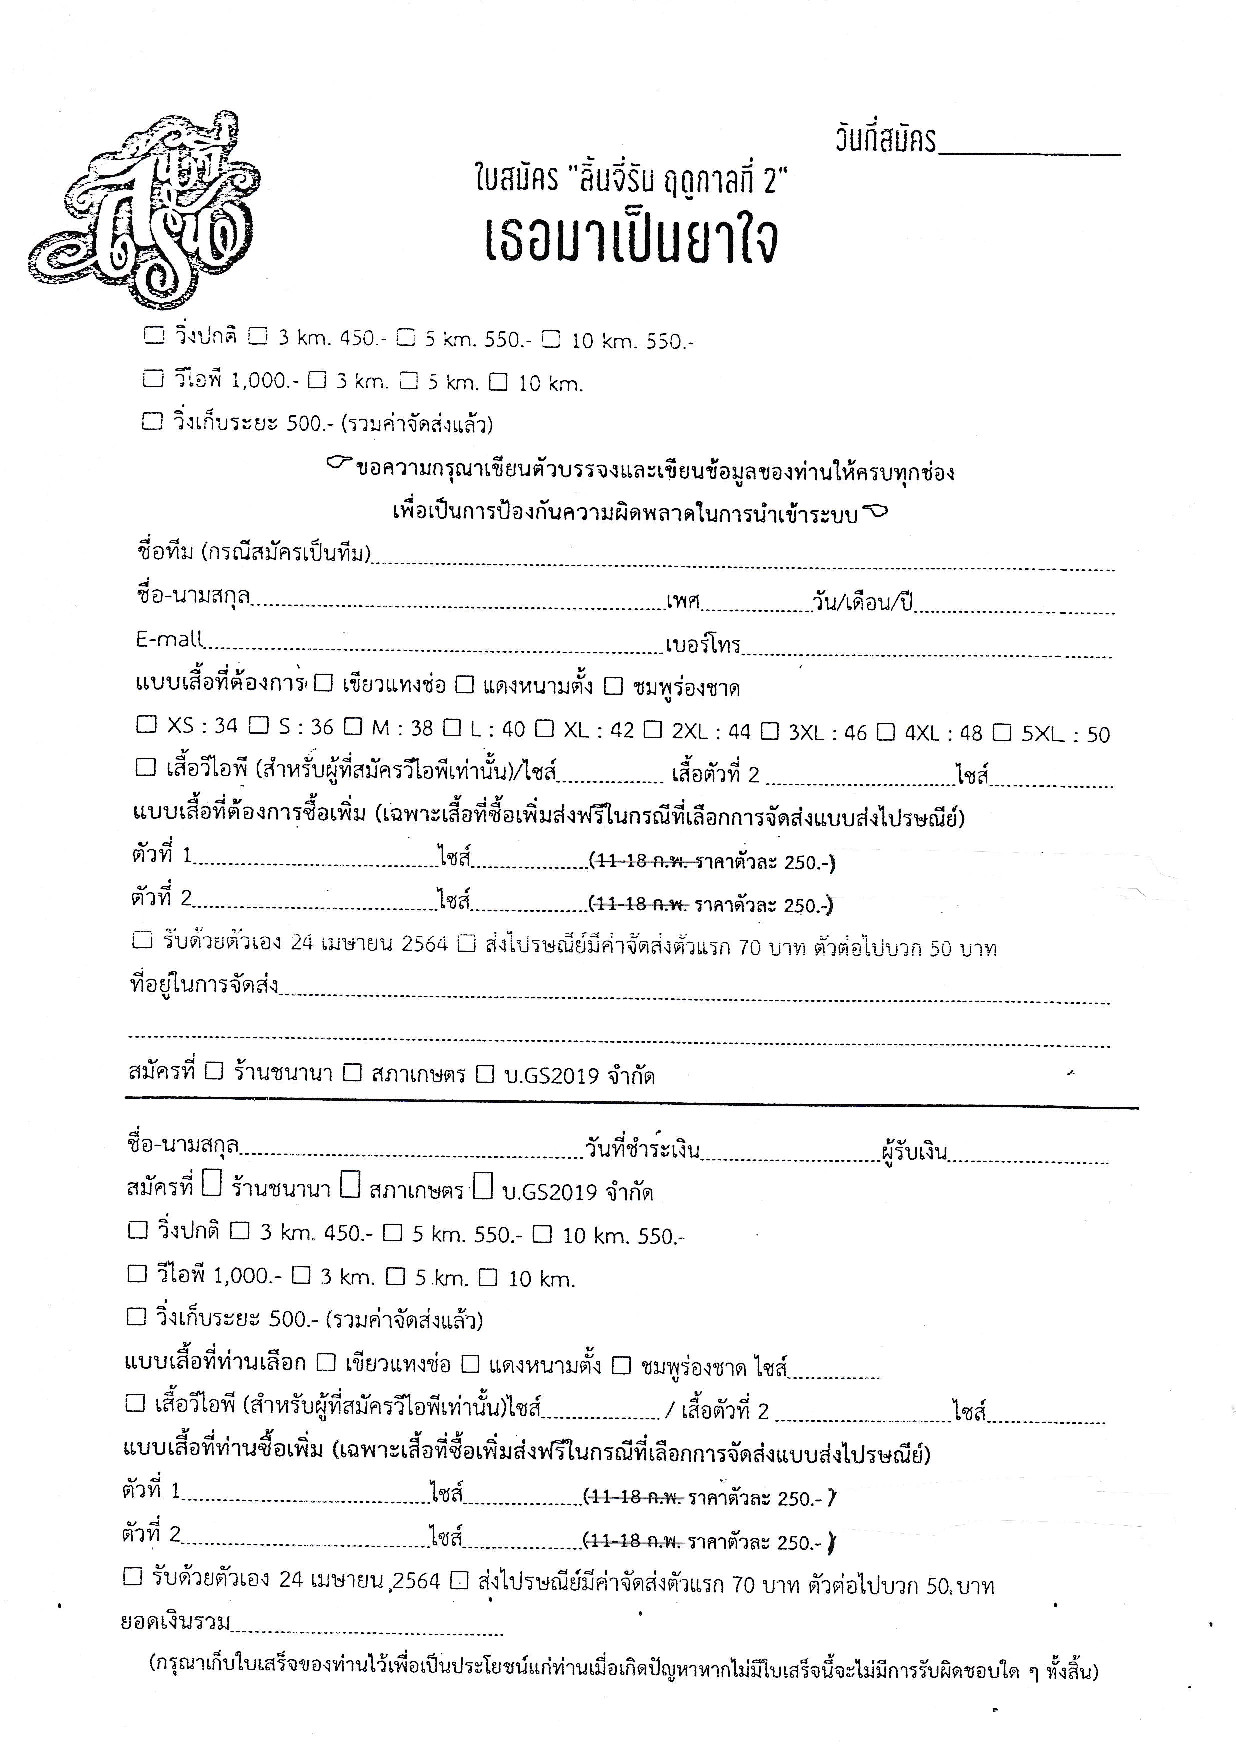 ลิ้นจี่รัน
วันที่สมัคร
ใบสมัคร "ลิ้นจี่รัน ฤดูกาลที่ 2"
เธอมาเป็นยาใจ
☐ วิ่งปกติ ☐ 3 km. 450.- ☐ 5 km. 550.- ☐ 10 km. 550.-
☐ วีไอพี 1,000.- ☐ 3 km. ☐ 5 km. ☐ 10 km.
☐ วิ่งเก็บระยะ 500.- (รวมค่าจัดส่งแล้ว)
ขอความกรุณาเขียนตัวบรรจงและเขียนข้อมูลของท่านให้ครบทุกช่อง
เพื่อเป็นการป้องกันความผิดพลาดในการนำเข้าระบบ
ชื่อทีม (กรณีสมัครเป็นทีม)
ชื่อ-นามสกุล เพศ วัน/เดือน/ปี
E-mall เบอร์โทร
แบบเสื้อที่ต้องการ ☐ เขียวแทงช่อ ☐ แดงหนามตั้ง ☐ ชมพูร่องชาด
☐ XS : 34 ☐ S : 36 ☐ M : 38 ☐ L : 40 ☐ XL : 42 ☐ 2XL : 44 ☐ 3XL : 46 ☐ 4XL : 48 ☐ 5XL : 50
☐ เสื้อวีไอพี (สำหรับผู้ที่สมัครวีไอพีเท่านั้น)/ไซส์ เสื้อตัวที่ 2 ไซส์
แบบเสื้อที่ต้องการซื้อเพิ่ม (เฉพาะเสื้อที่ซื้อเพิ่มส่งฟรีในกรณีที่เลือกการจัดส่งแบบส่งไปรษณีย์)
ตัวที่ 1 ไซส์ (11-18 ก.พ. ราคาตัวละ 250.-)
ตัวที่ 2 ไซส์ (11-18 ก.พ. ราคาตัวละ 250.-)
☐ รับด้วยตัวเอง 24 เมษายน 2564 ☐ ส่งไปรษณีย์มีค่าจัดส่งตัวแรก 70 บาท ตัวต่อไปบวก 50 บาท
ที่อยู่ในการจัดส่ง
สมัครที่ ☐ ร้านชนานา ☐ สภาเกษตร ☐ บ.GS2019 จำกัด
ชื่อ-นามสกุล วันที่ชำระเงิน ผู้รับเงิน
สมัครที่ ☐ ร้านชนานา ☐ สภาเกษตร ☐ บ.GS2019 จำกัด
☐ วิ่งปกติ ☐ 3 km. 450.- ☐ 5 km. 550.- ☐ 10 km. 550.-
☐ วีไอพี 1,000.- ☐ 3 km. ☐ 5 km. ☐ 10 km.
☐ วิ่งเก็บระยะ 500.- (รวมค่าจัดส่งแล้ว)
แบบเสื้อที่ท่านเลือก ☐ เขียวแทงช่อ ☐ แดงหนามตั้ง ☐ ชมพูร่องชาด ไซส์
☐ เสื้อวีไอพี (สำหรับผู้ที่สมัครวีไอพีเท่านั้น)ไซส์ / เสื้อตัวที่ 2 ไซส์
แบบเสื้อที่ท่านซื้อเพิ่ม (เฉพาะเสื้อที่ซื้อเพิ่มส่งฟรีในกรณีที่เลือกการจัดส่งแบบส่งไปรษณีย์)
ตัวที่ 1 ไซส์ (11-18 ก.พ. ราคาตัวละ 250.-)
ตัวที่ 2 ไซส์ (11-18 ก.พ. ราคาตัวละ 250.-)
☐ รับด้วยตัวเอง 24 เมษายน 2564 ☐ ส่งไปรษณีย์มีค่าจัดส่งตัวแรก 70 บาท ตัวต่อไปบวก 50 บาท
ยอดเงินรวม
(กรุณาเก็บใบเสร็จของท่านไว้เพื่อเป็นประโยชน์แก่ท่านเมื่อเกิดปัญหาหากไม่มีใบเสร็จนี้จะไม่มีการรับผิดชอบใด ๆ ทั้งสิ้น)